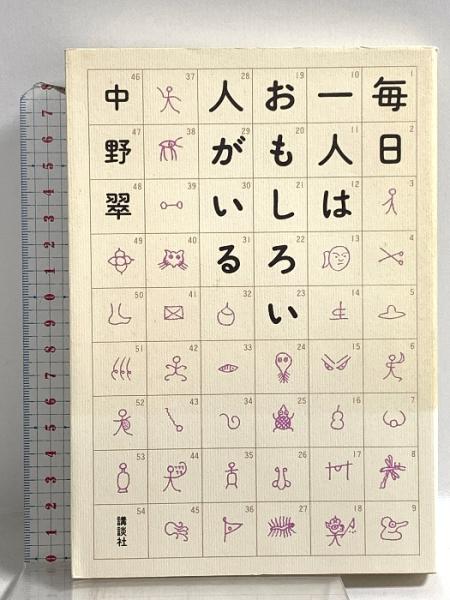 毎日
一人は
おもしろい
人がいる
中野翠
講談社
1 2 3 4 5 6 7 8 9
10 11 12 13 14 15 16 17 18
19 20 21 22 23 24 25 26 27
28 29 30 31 32 33 34 35 36
37 38 39 40 41 42 43 44 45
46 47 48 49 50 51 52 53 54
8 7 6 5 4 3 2 1 0 9 8 7 6 5 4 3 2 1 0